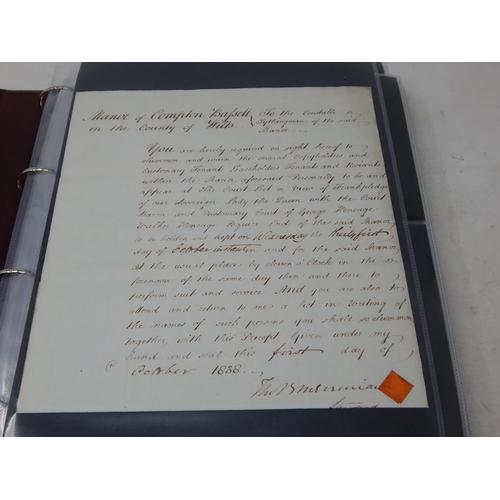 Manor of Compton Bassett { To the Constable or
in the County of Wilts { Tythingman of the said
Manor
You are hereby required on sight hereof to
summon and warn the several Copyholders and
Customary Tenants Leaseholders Tenants and Resiants
within the Manor aforesaid Personally to be and
appear at The Court Leet or View of Frankpledge
of our Sovereign Lady the Queen with the Court
Baron and Customary Court of George Heneage
Walker Heneage Esquire Lord of the said Manor
to be holden and kept on Wednesday the thirtyfirst
day of October instant in and for the said Manor
at the usual place by eleven o'Clock in the
forenoon of the same day then and there to
perform suit and service And you are also to
attend and return to me a list in Writing of
the names of such persons you shall so summon
together with this Precept Given under my
hand and seal this first day of
October 1888
Steward